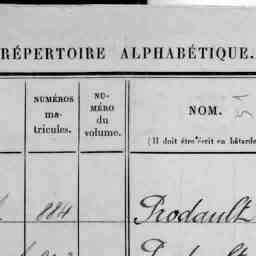 RÉPERTOIRE ALPHABÉTIQUE.
NUMÉROS
ma-
tricules.
NU-
MÉRO
du
volume.
NOM.
(Il doit être écrit en bâtarde
884 Prodault